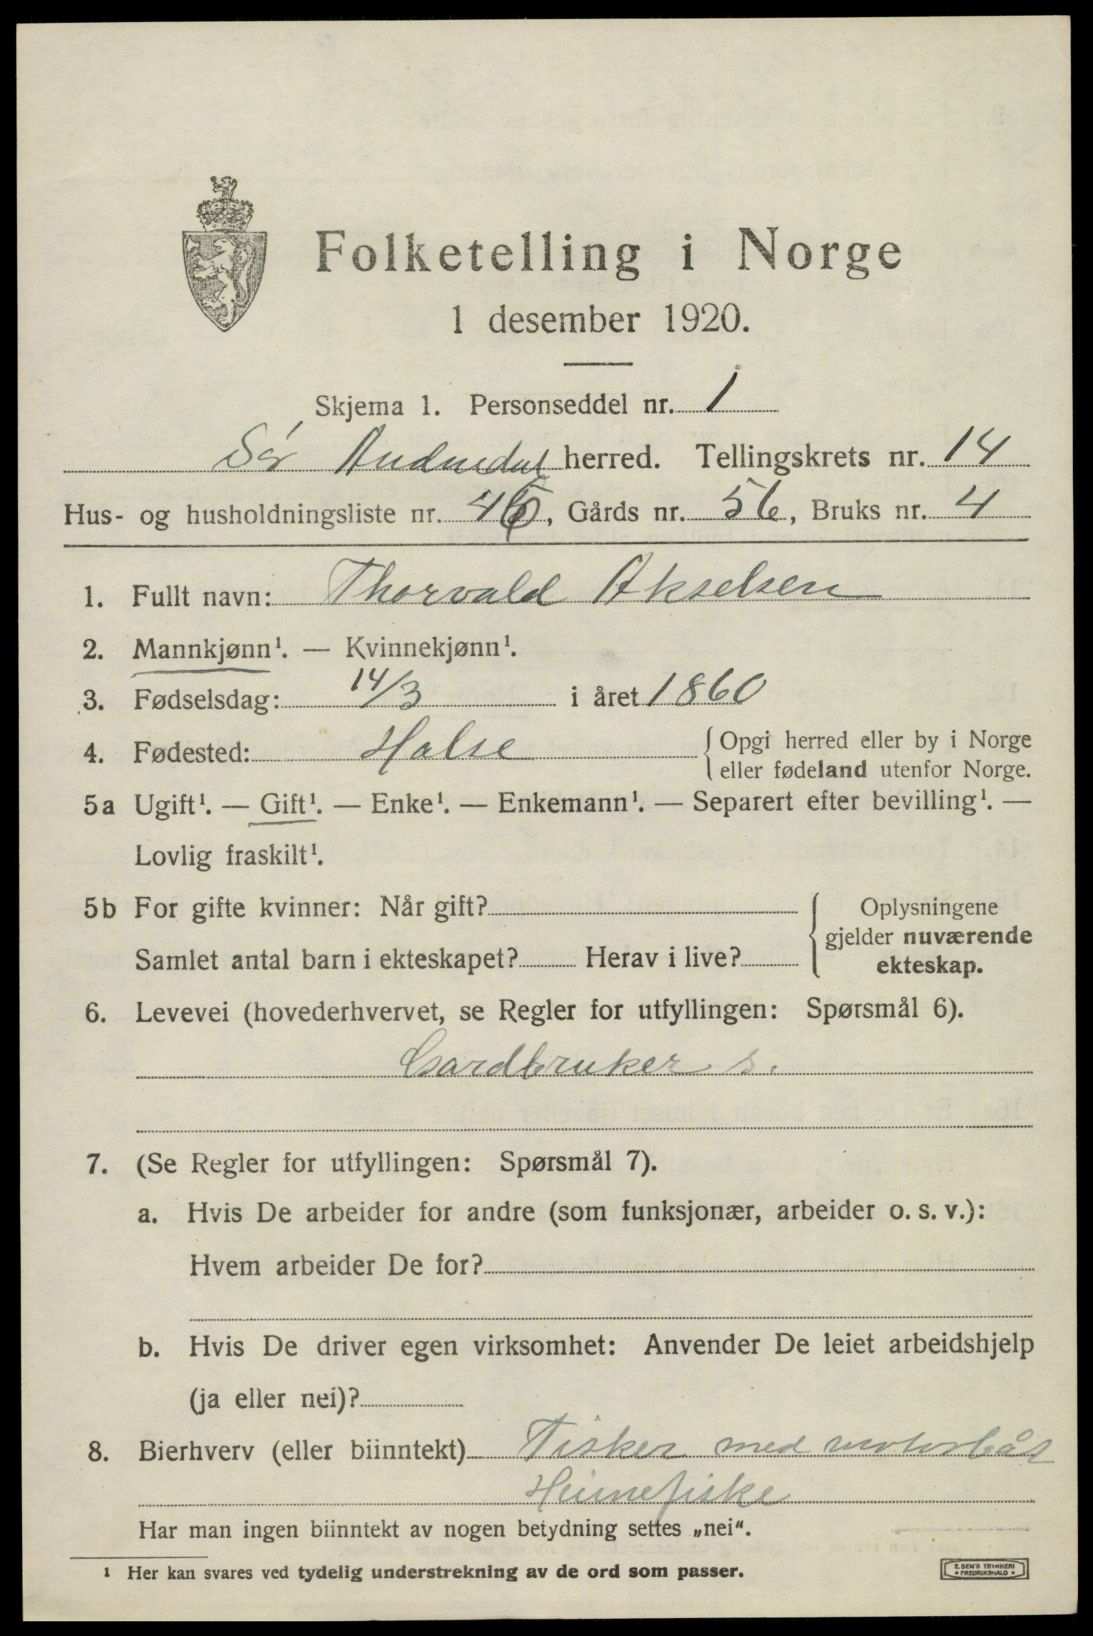 Folketelling i Norge
1 desember 1920.
Skjema 1. Personseddel nr. 1
Sør Audnedal herred. Tellingskrets nr. 14
Hus- og husholdningsliste nr. 46, Gårds nr. 56, Bruks nr. 4
1. Fullt navn: Thorvald Akselsen
2. Mannkjønn¹. — Kvinnekjønn¹.
3. Fødselsdag: 14/3 i året 1860
4. Fødested: Halse { Opgi herred eller by i Norge
eller fødeland utenfor Norge.
5a Ugift¹. — Gift¹. — Enke¹. — Enkemann¹. — Separert efter bevilling¹. —
Lovlig fraskilt¹.
5b For gifte kvinner: Når gift?
Samlet antal barn i ekteskapet? Herav i live?
Oplysningene
gjelder nuværende
ekteskap.
6. Levevei (hovederhvervet, se Regler for utfyllingen: Spørsmål 6).
Gardbruker s.
7. (Se Regler for utfyllingen: Spørsmål 7).
a. Hvis De arbeider for andre (som funksjonær, arbeider o. s. v.):
Hvem arbeider De for?
b. Hvis De driver egen virksomhet: Anvender De leiet arbeidshjelp
(ja eller nei)?
8. Bierhverv (eller biinntekt) Fisker med motorbåt
Heimefiske
Har man ingen biinntekt av nogen betydning settes „nei“.
¹ Her kan svares ved tydelig understrekning av de ord som passer.
E. SEM'S TRYKKERI
FREDRIKSHALD